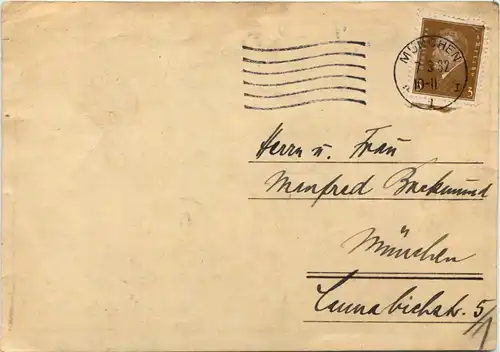 MÜNCHEN
3.32
10-11
3
Herrn u. Frau
Manfred Backmund
München
Cannabichstr. 5/1